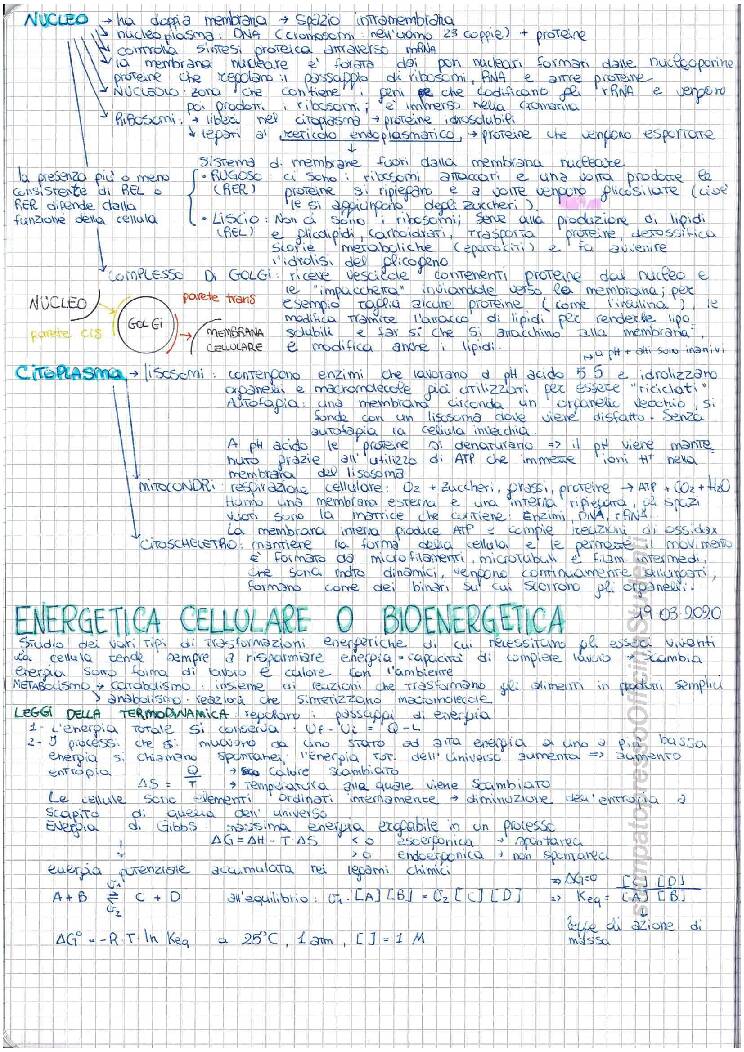 NUCLEO → ha doppia membrana → spazio intramembrana
→ nucleoplasma: DNA (cromosomi: nell'uomo 23 coppie) + proteine
→ controlla sintesi proteica attraverso mRNA
→ la membrana nucleare e' forata dai pori nucleari formati dalle nucleoporine
proteine che regolano il passaggio di ribosomi, RNA e altre proteine
→ NUCLEOLO: zona che contiene i geni che codificano gli rRNA e vengono
poi prodotti i ribosomi; e' immerso nella cromatina
→ RIBOSOMI: → liberi nel citoplasma → proteine idrosolubili
→ legati al reticolo endoplasmatico → proteine che vengono esportate
Sistema di membrane fuori dalla membrana nucleare
la presenza più o meno
consistente di REL o
RER dipende dalla
funzione della cellula
• RUGOSO: ci sono i ribosomi attaccati e una volta prodotte le
(RER) proteine si ripiegano e a volte vengono glicosilate (cioè
le si aggiungono degli zuccheri).
• LISCIO: Non ci sono i ribosomi; serve alla produzione di lipidi
(REL) e glicolipidi, carboidrati, trasporta proteine, detossifica
scorie metaboliche (epatociti) e fa avvenire
l'idrolisi del glicogeno
COMPLESSO DI GOLGI: riceve vescicole contenenti proteine dal nucleo e
le "impacchetta" inviandole verso la membrana; per
esempio taglia alcune proteine (come l'insulina), le
modifica tramite l'attacco di lipidi per renderle lipo
solubili e far sì che si attacchino alla membrana,
e modifica anche i lipidi.
NUCLEO
parete cis
GOLGI
parete trans
MEMBRANA
CELLULARE
→ a pH + alti sono inattivi
CITOPLASMA → lisosomi: contengono enzimi che lavorano a pH acido 5.5 e idrolizzano
organelli e macromolecole già utilizzati per essere "riciclati"
Autofagia: una membrana circonda un organello vecchio, si
fonde con un lisosoma dove viene disfatto. Senza
autofagia la cellula invecchia.
A pH acido le proteine si denaturano => il pH viene mante
nuto grazie all'utilizzo di ATP che immette ioni H⁺ nella
membrana del lisosoma
MITOCONDRI: respirazione cellulare: O2 + zuccheri, grassi, proteine → ATP + CO2 + H2O
Hanno una membrana esterna e una interna ripiegata, gli spazi
vuoti sono la matrice che contiene: Enzimi, DNA, rRNA.
La membrana interna produce ATP e compie reazioni di ossidaz
CITOSCHELETRO: mantiene la forma della cellula e le permette il movimento
e' formato da microfilamenti, microtubuli e filam. intermedi,
che sono molto dinamici, vengono continuamente
formano come dei binari su cui scorrono gli organelli.
ENERGETICA CELLULARE O BIOENERGETICA 19.03.2020
Studio dei vari tipi di trasformazioni energetiche di cui necessitano gli esseri viventi
La cellula tende sempre a risparmiare energia = capacità di compiere lavoro → scambia
energia sotto forma di lavoro e calore con l'ambiente
METABOLISMO → catabolismo: insieme di reazioni che trasformano gli alimenti in prodotti semplici
→ anabolismo: reazioni che sintetizzano macromolecole
LEGGI DELLA TERMODINAMICA: regolano i passaggi di energia
1- L'energia totale si conserva: Uf - Ui = Q - L
2- I processi che si muovono da uno stato ad alta energia a uno a più bassa
energia si chiamano spontanei, l'energia tot. dell'universo aumenta => aumento
entropia ΔS = Q/T → calore scambiato
→ temperatura alla quale viene scambiato
Le cellule sono elementi ordinati internamente → diminuzione dell'entropia a
scapito di quella dell'universo
Energia di Gibbs: massima energia erogabile in un processo
ΔG = ΔH - T ΔS < 0 esoergonica → spontanea
> 0 endoergonica → non spontanea
energia potenziale accumulata nei legami chimici
A + B ⇌ C + D all'equilibrio: v1 · [A] [B] = v2 [C] [D] => ΔG=0
v1 v2 => Keq = [C] [D] / [A] [B]
legge di azione di
massa
ΔG° = -R·T·ln Keq a 25°C, 1 atm, [ ] = 1 M
stampato presso Officina Studenti